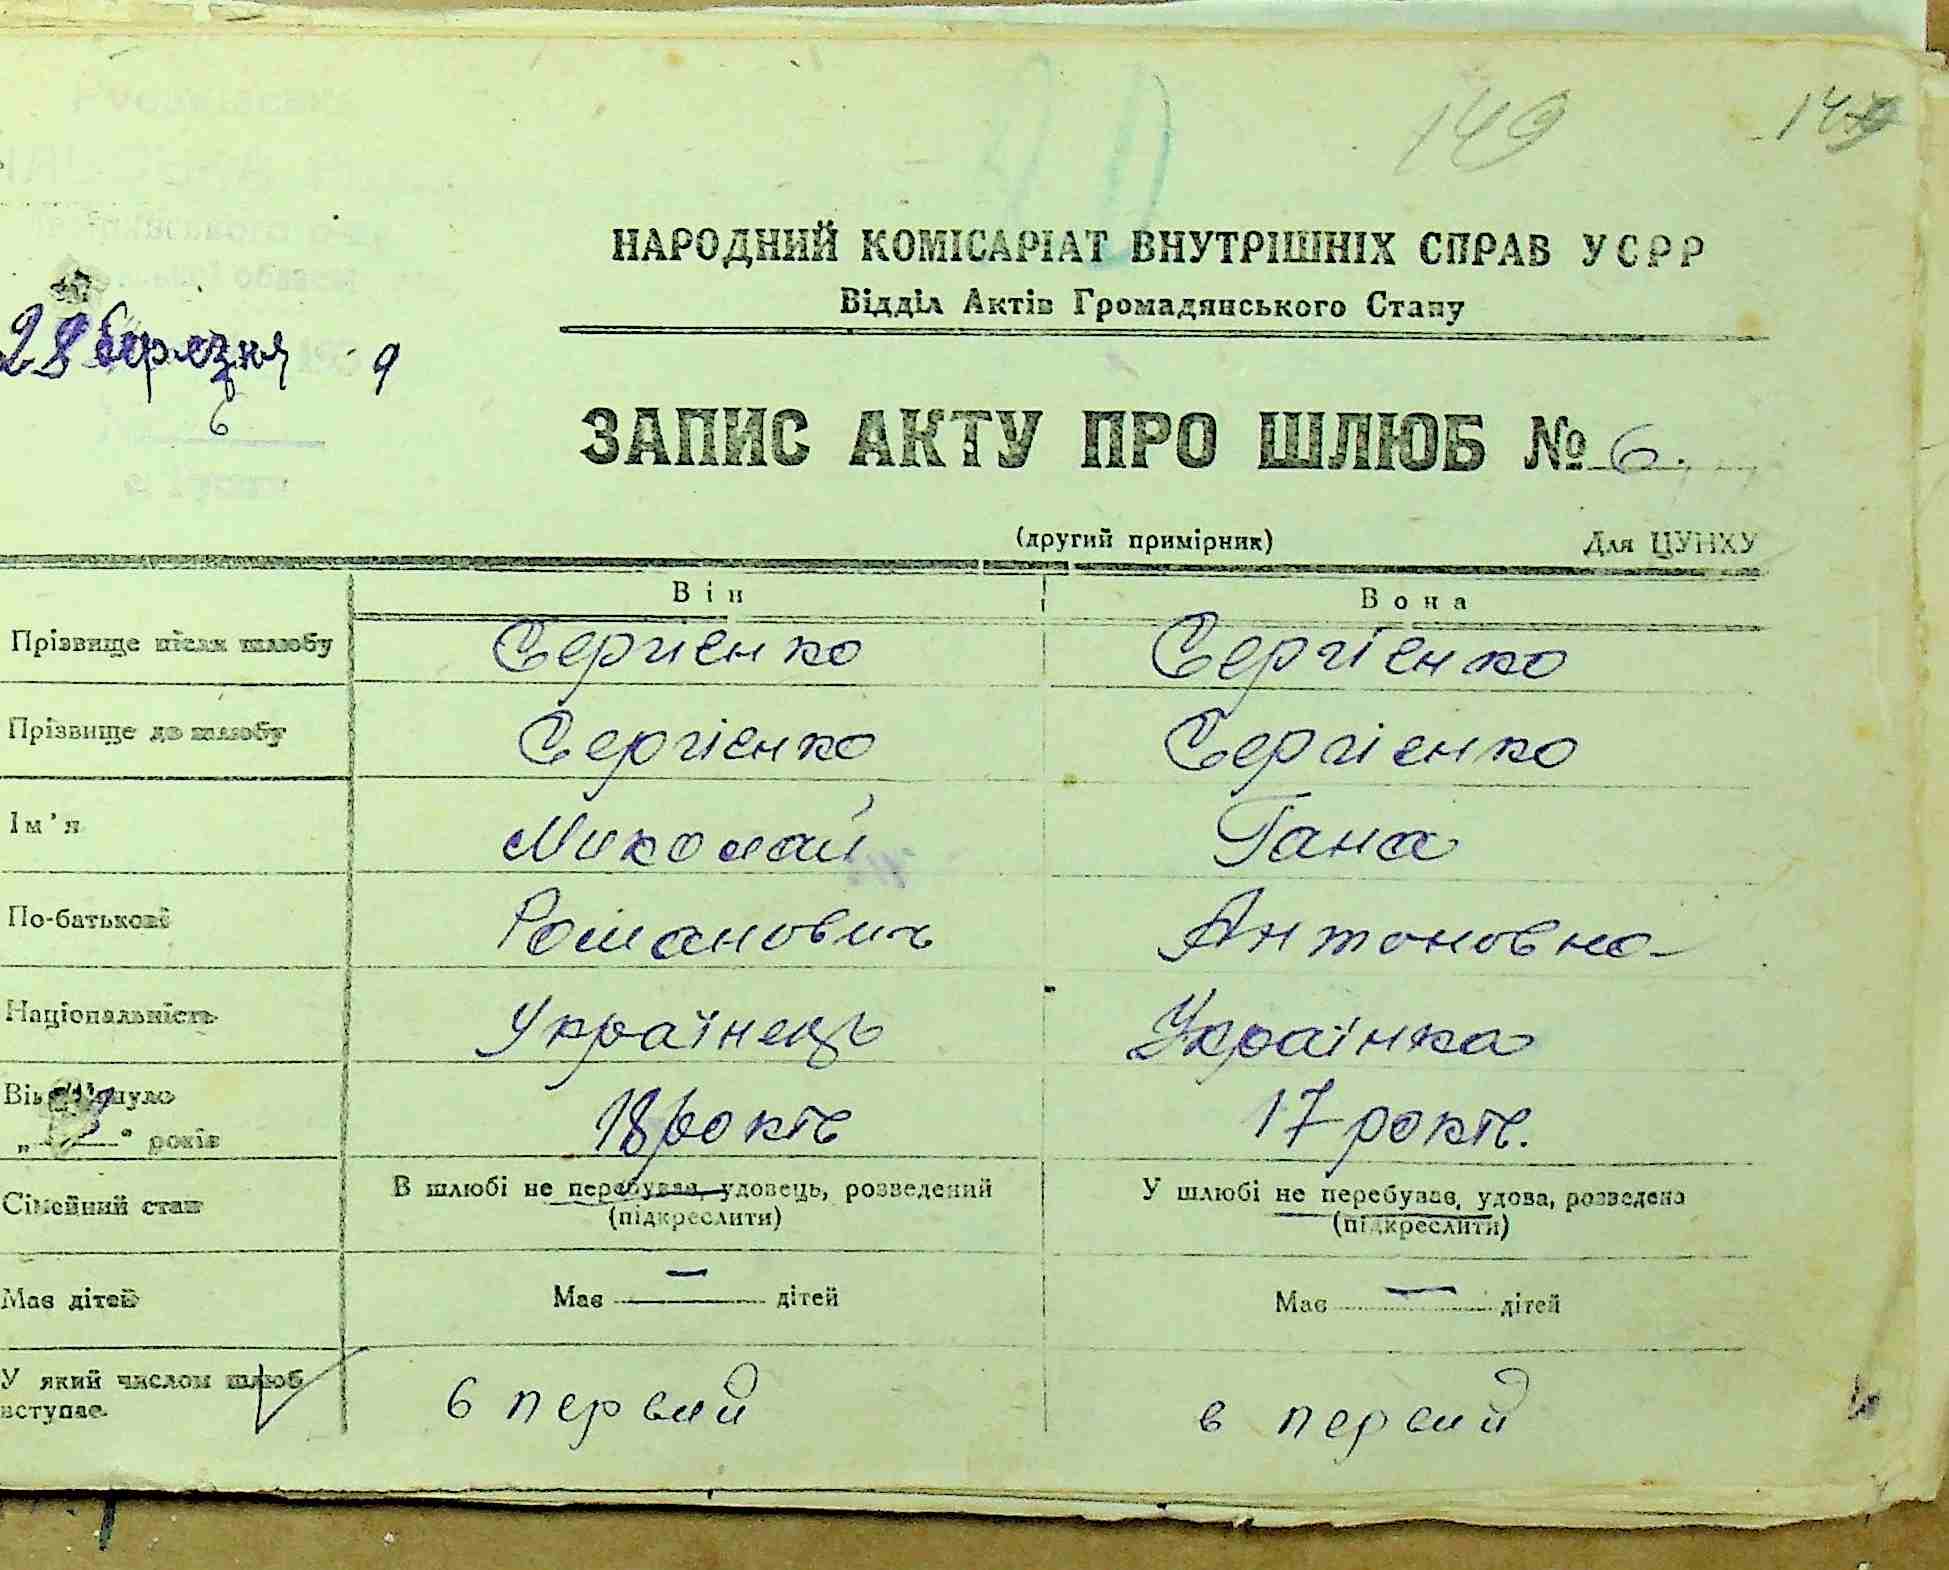 149 149
НАРОДНИЙ КОМІСАРІАТ ВНУТРІШНІХ СПРАВ УСРР
Відділ Актів Громадянського Стану
28 березня 9
6
ЗАПИС АКТУ ПРО ШЛЮБ № 6.
(другий примірник) Для ЦУНХУ
Він Вона
Прізвище після шлюбу Сергієнко Сергієнко
Прізвище до шлюбу Сергієнко Сергієнко
Ім'я Миколай Гана
По-батькові Романович Антоновна
Національність Українець Українка
18 років 17 років.
" " років
Сімейний стан В шлюбі не перебував, удовець, розведений У шлюбі не перебував, удова, розведена
(підкреслити) (підкреслити)
Має дітей Має — дітей Має — дітей
У який числом шлюб в первий в первий
вступає